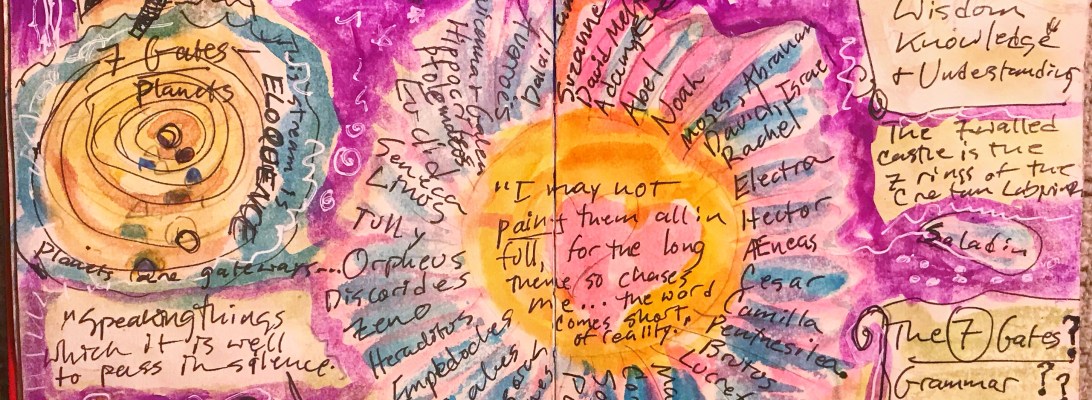 7 Gates -
planets
Stream is
ELOQUENCE
Planets are gateways...
"Speaking things
which it is well
to pass in silence.
Hippocrates
Euclid
Seneca
Linos
Tully
Orpheus
Discorides
Zeno
Heraditos
Empedocles
"I may not
paint them all in
full, for the long
theme so chases
me... the word
comes short
of reality."
Suzanne
David
Abel
Noah
Moses, Abraham
David, Israel
Rachel
Electra
Hector
AEneas
Cesar
Camilla
Penthesilea
Brutos
Wisdom
Knowledge
+ Understanding
The 7 walled
castle is the
7 rings of the
Cretan
Saladin
The 7 Gates?
Grammar ??